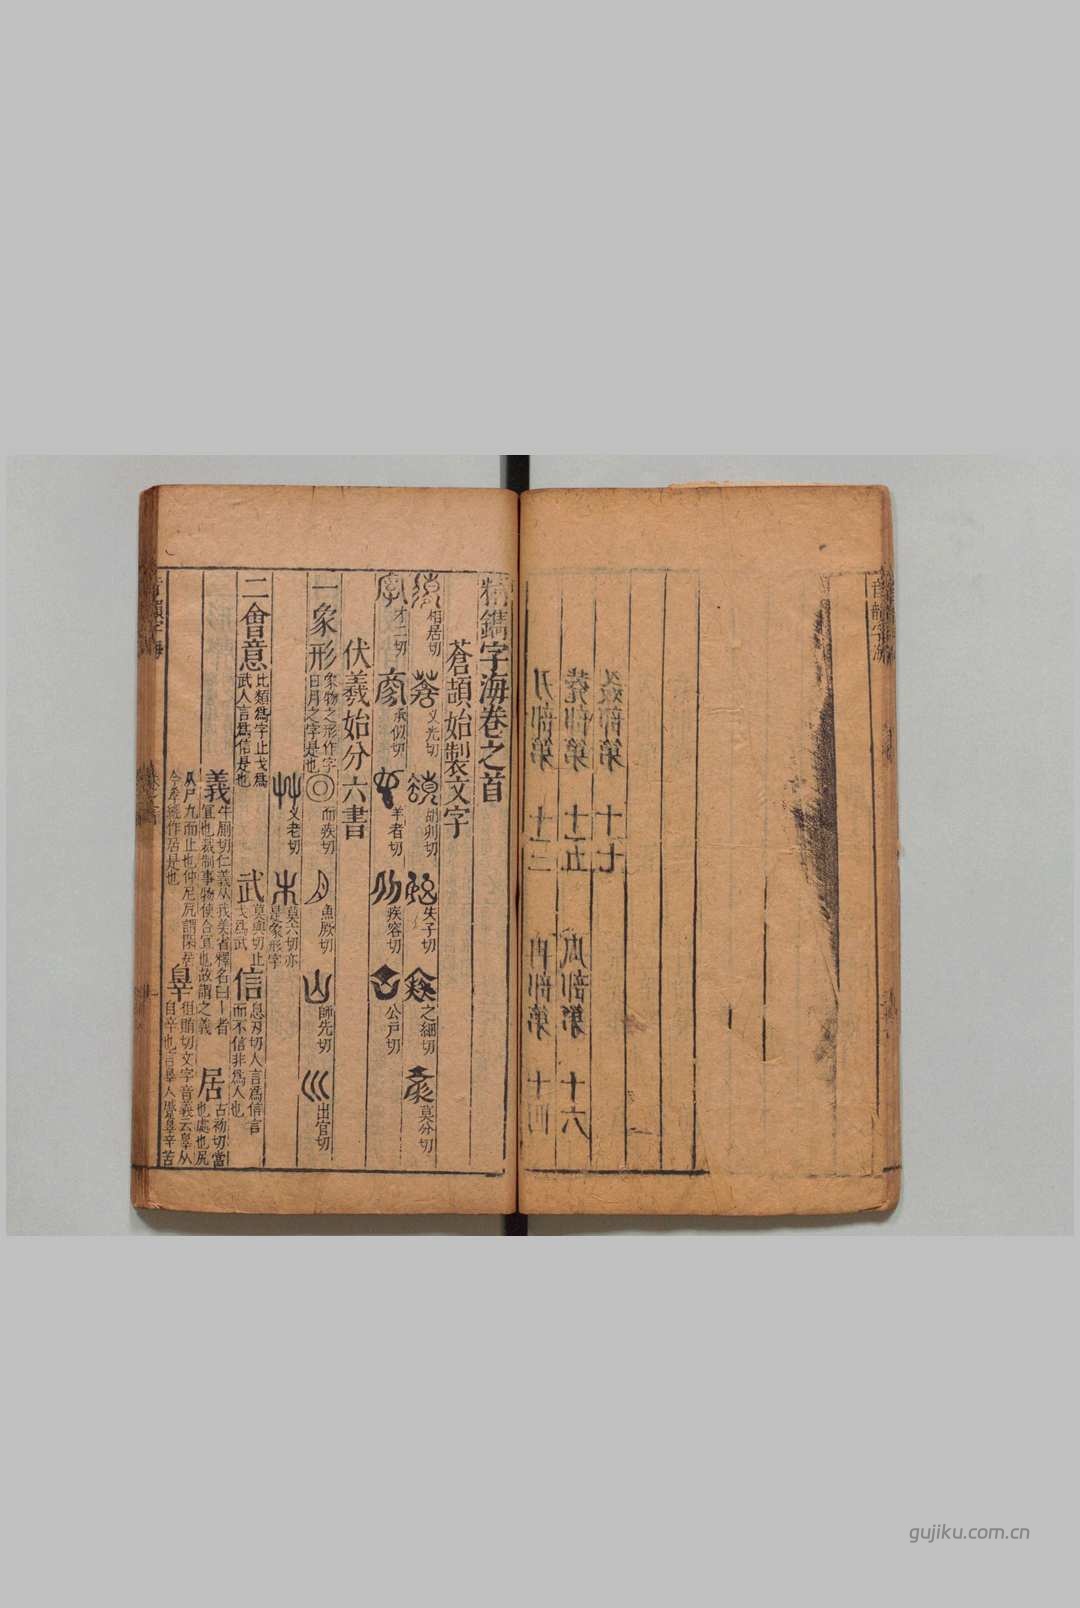 精鐫字海卷之首
蒼頡始製文字
相居切 乂光切 胡刎切 失子切 之細切 莫分切
才二切 承似切 羊者切 疾容切 公戶切
伏羲始分六書
一象形 象物之形作字日月之字是也 而疾切 魚厥切 師先切 出宜切
乂老切 莫六切亦是象形字
二會意 比類爲字止戈爲武人言爲信是也 武 莫與切止戈爲武 信 息刃切人言爲信言而不信非爲人也
義 牛厠切仁義从我美省釋名曰 者宜也裁制事物使合宜也故謂之義 居 古初切當也處也凥
从尸九而止也仲尼凥謂閑居今 作居是也 辠 徂賄切文字音義云辠从自辛也言辠人蹙鼻辛苦
刀部第十三 部第十四
堯部第十五 瓜部第十六
部第十七
音韻字海
gujiku.com.cn